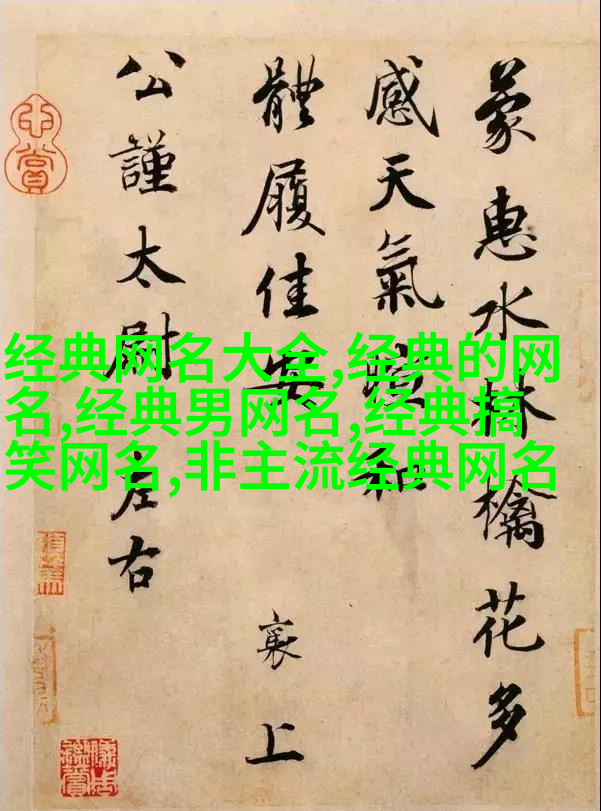 蒙惠水林檎花多
感天氣暄和
體履佳安 襄上
公謹太尉左右
经典网名大全,经典的网
名,经典男网名,经典搞
笑网名,非主流经典网名